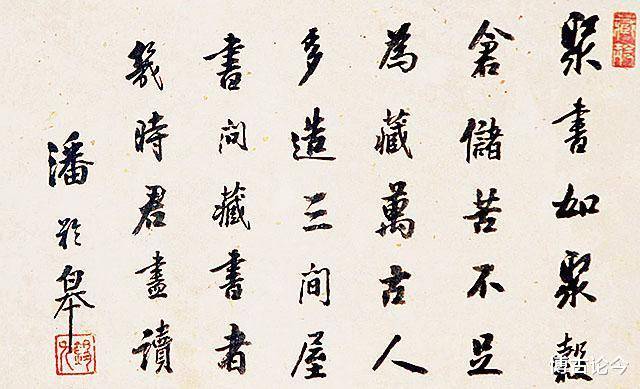 聚書如聚穀
倉儲苦不足
為藏萬古人
多造三間屋
書問藏書者
幾時君盡讀
潘齡皋
錫九
博古论今